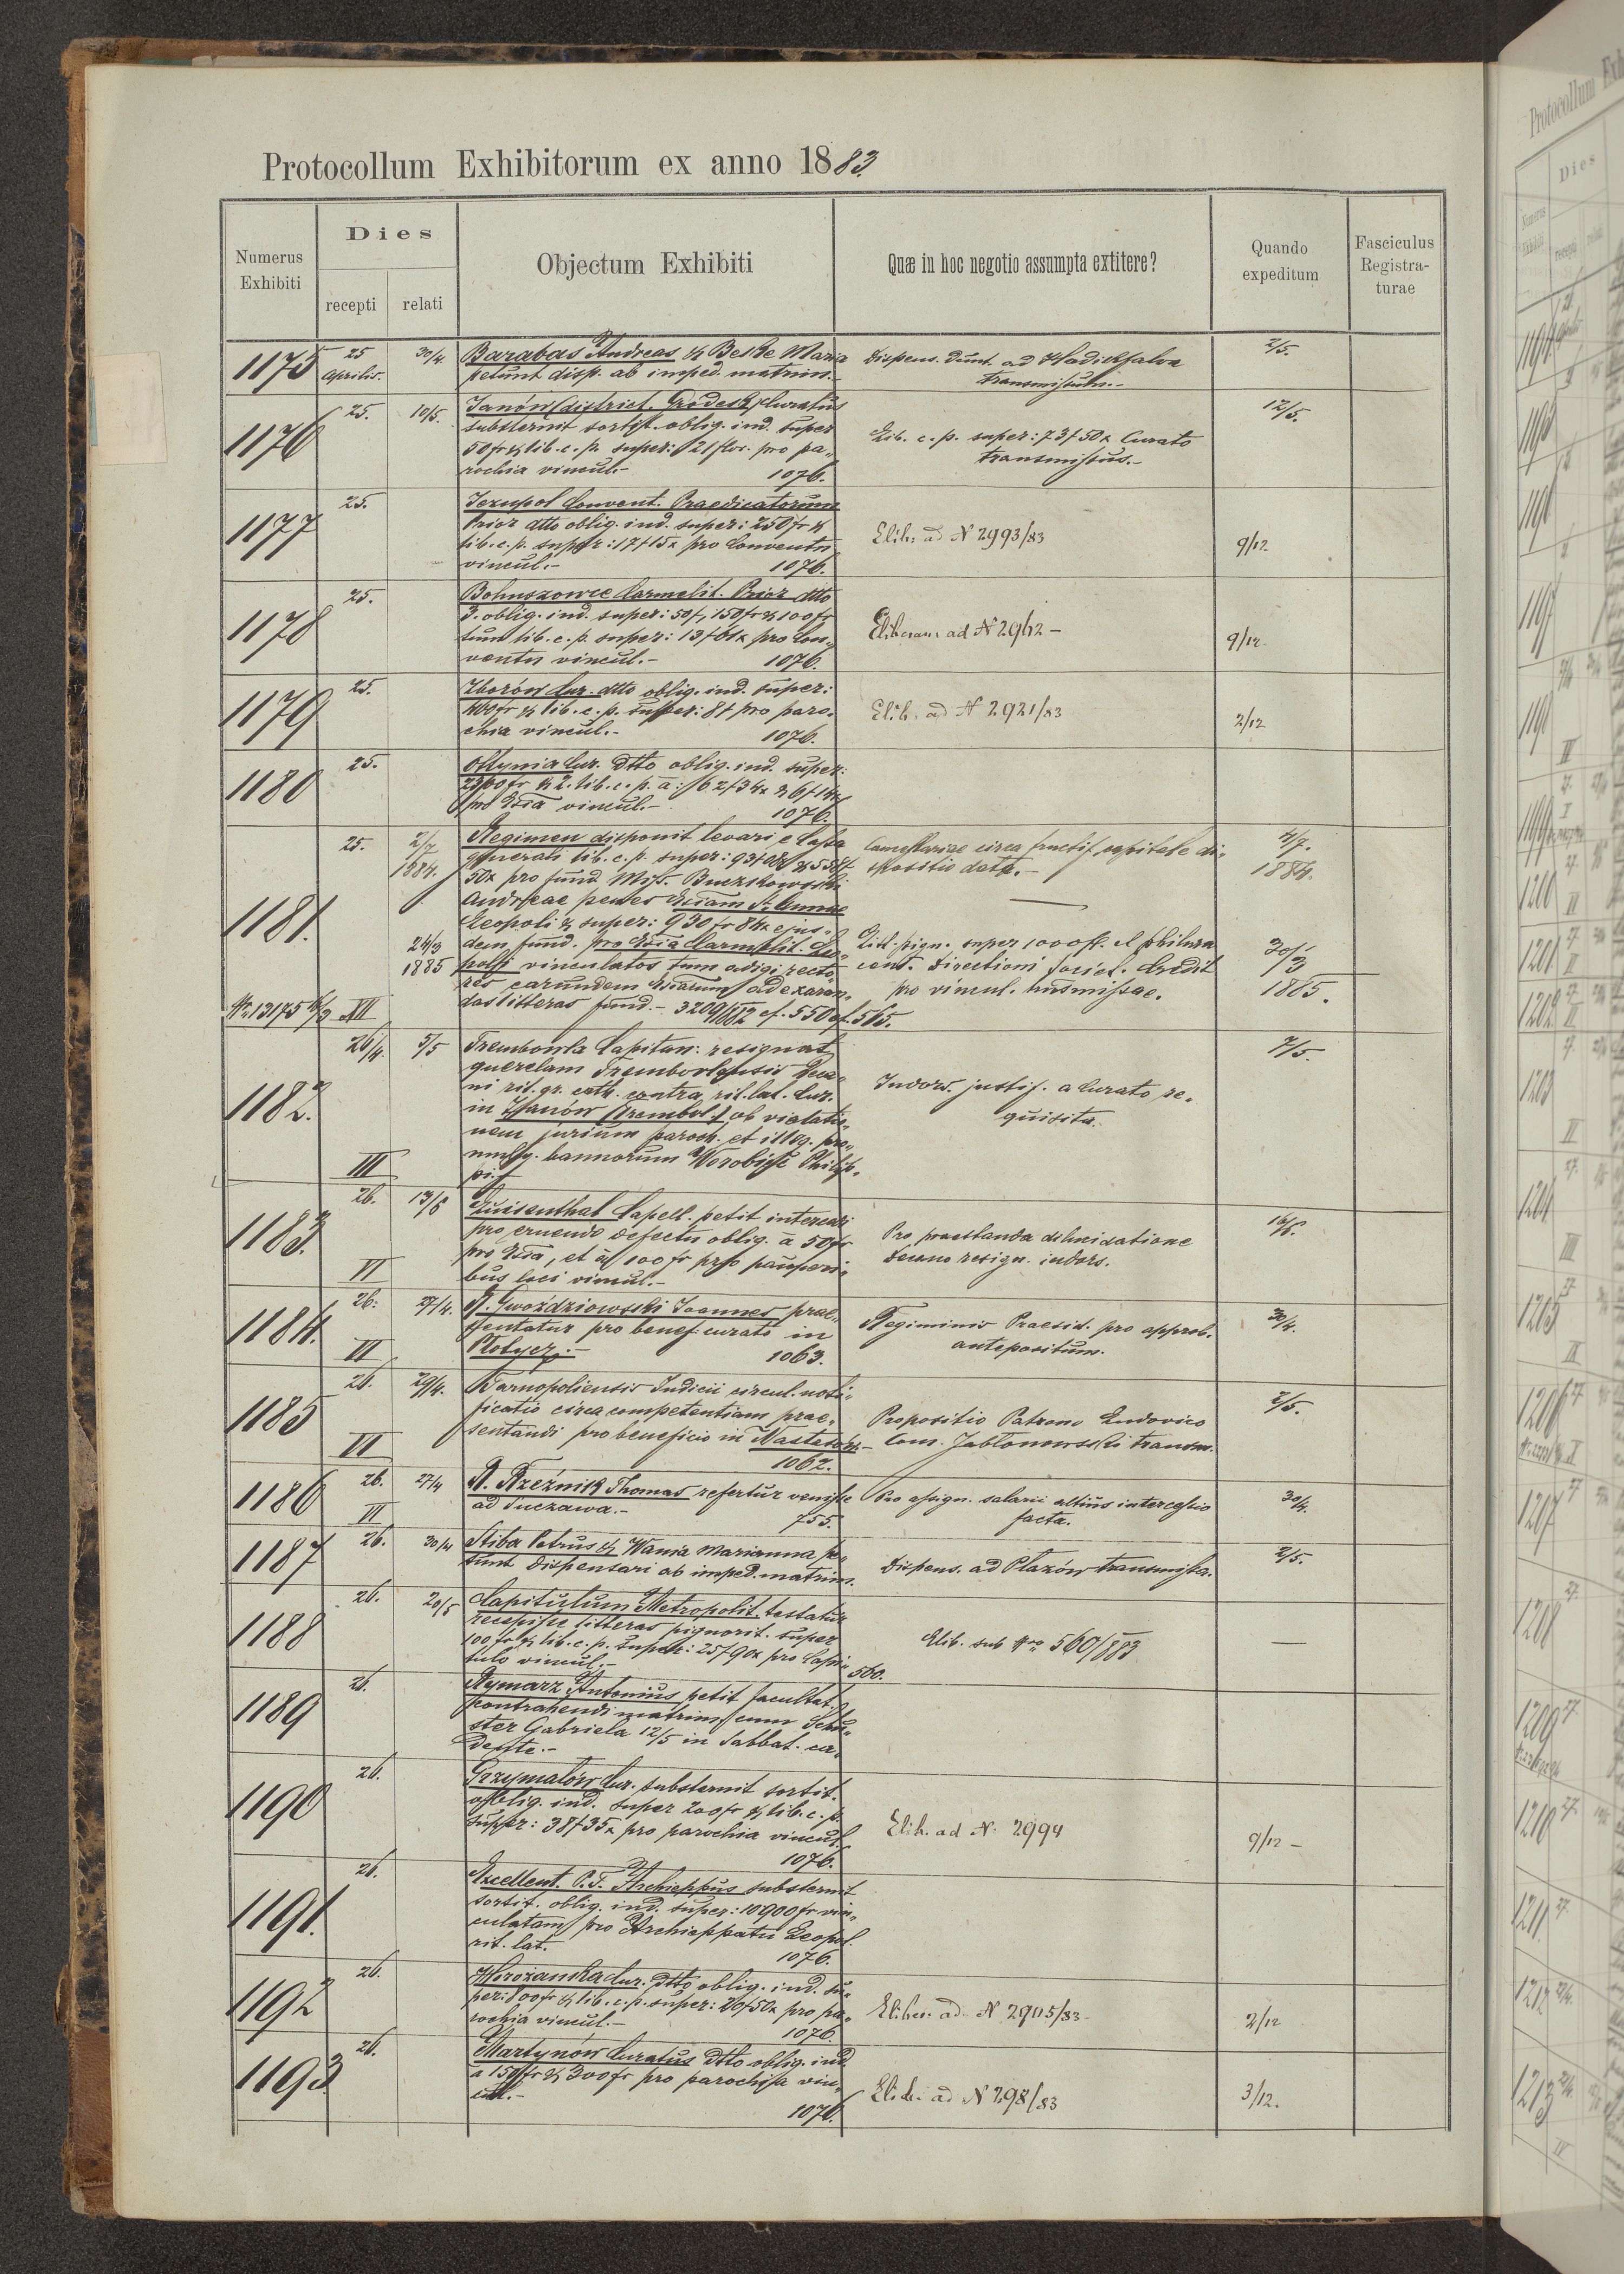 Protocollum Exhibitorum ex anno 1883.
Numerus Exhibiti
Dies
recepti
relati
Objectum Exhibiti
Quæ in hoc negotio assumpta extitere?
Quando expeditum
Fasciculus Registraturae
1175
25 Aprilis.
30/4.
Barabas Andreas & Beske Maria
petunt disp. ab imped. matrim.-
Dispens. dunt. ad Hadikfalva
transmissum.-
2/5.
1176
25.
10/5.
Janów (district. Grodek) Curatus
substernit sortit. oblig. ind. super
50 fr & lib. c. p. super: 21 flor. pro pa„
rochia vincul.-
1076.
Lib. c. p. super: 73 f 50 x Curato
transmissus.-
12/5.
1177
25.
Jezupol Convent. Praedicatorum
Prior dtto oblig. ind. super: 250 fr &
lib. c. p. super: 17 f 15 x pro Conventu
vincul.-
1076.
Elib. ad N 2993/83
9/12
1178
25.
Bohuszowce Carmelit. Prior dtto
3. oblig. ind. super: 50 f, 150 fr & 100 fr
tum lib. c. p. super: 13 f 61 x pro Con„
ventu vincul.-
1076.
ad N 2962 -
9/12
1179
25.
Zborów Cur. dtto oblig. ind. super:
400 fr & lib. c. p. super: 8 f pro paro„
chia vincul.-
1076.
Elib. ad N 2921/83
2/12
1180
25.
Ottynia Cur. dtto oblig. ind. super:
& 2. lib. c. p. a: 62 f 34 x & 6 f 14 x
pro Eccla vincul.-
1076.
1181.
25.
2/7
1884.
Regimen disponit levari e Cassa
generali lib. c. p. super:
50 x pro fund. Miss. Buczkowski
Andreae penes Ecciam St. Annae
Leopoli & super: 930 fr 84 x ejus„
dem fund. pro Eccla Carmelit. Leo„
poli vinculatos tum adigi recto„
res earundem Ecclarum ad exaran„
das litteras fund.- 3209/882 cf. 550 cf. 565.
circa capitale di„
spositio data.-
4/7.
1884.
24/3
1885
super 1000 fl.
Directioni Societ. Credit
pro vincul. transmissae.
30/3
1885.
XII
1182.
26/4.
5/5
Trembowla Capitan: resignat
querelam Trembovlensis Deca„
ni rit. gr. cath. contra rit. lat. Cur.
in Janów (Trembol.) ob violatio„
nem jurium paroch. et illeg. pro„
mulg. bannorum Worobij Philip„
pi.-
III
Indors. justif. a Curato re„
quisita.
7/5.
1183.
26.
13/6
Luisenthal Capell. petit intercedi
pro eruendo defectu oblig. à 50 fr
pro Eccla, et à 100 fr pro pauperi„
bus loci vincul.-
VI
Pro praestanda dilucidatione
Decano resign. indors.
16/6.
1184.
26.
27/4.
R. Gwoździowski Joannes prae„
sentatur pro benef. curato in
1063.
VI
Regiminis Praesid. pro approb.
antepositum.
30/4.
1185
26.
29/4.
Tarnopoliensis Judicii circul. noti„
ficatio circa competentiam prae„
sentandi pro beneficio in Nastasów.-
1062.
VI
Propositio Patrono Ludovico
Com. Jabłonowski transm.
2/5.
1186
26.
27/4
R. Rzeźnik Thomas refertur venisse
ad Suczawa.-
755.
VI
Pro assign. salarii altius intercessio
facta.
30/4.
1187
26.
30/4
Stiba Petrus & Wania Marianna pe„
tunt dispensari ab imped. matrim.
Dispens. ad Płazów transmissa.
2/5.
1188
26.
20/5
Capitulum Metropolit. testatur
recepisse litteras pignorit. super
100 fr & lib. c. p. super: 25 f 90 x pro Capi„
tulo vincul.-
560.
Elib. sub Nro 560/883
—
1189
26.
Rymarz Antonius petit facultat.
contrahendi matrim. cum Schu„
ster Gabriela 12/5 in Sabbat. ca„
dente.-
1190
26.
Grzymałów Cur. substernit sortit.
oblig. ind. super 200 fr & lib. c. p.
super: 38 f 35 x pro parochia vincul.
1076.
Elib. ad N. 2994
9/12 -
1191.
26.
Excellent. P.T. Archieppus substernit
sortit. oblig. ind. super: 10900 fr vin„
culatam pro Archieppatu Leopol.
rit. lat.
1076.
1192
26.
Horożanka Cur. dtto oblig. ind. su„
per: & lib. c. p. super: 20 f 50 x pro pa„
rochia vincul.-
1076.
ad N 2905/83-
2/12
1193
26.
Martynów Curatus dtto oblig. ind.
a 150 fr & 300 fr pro parochia vin„
cul.-
1076.
ad N 298/83
3/12.